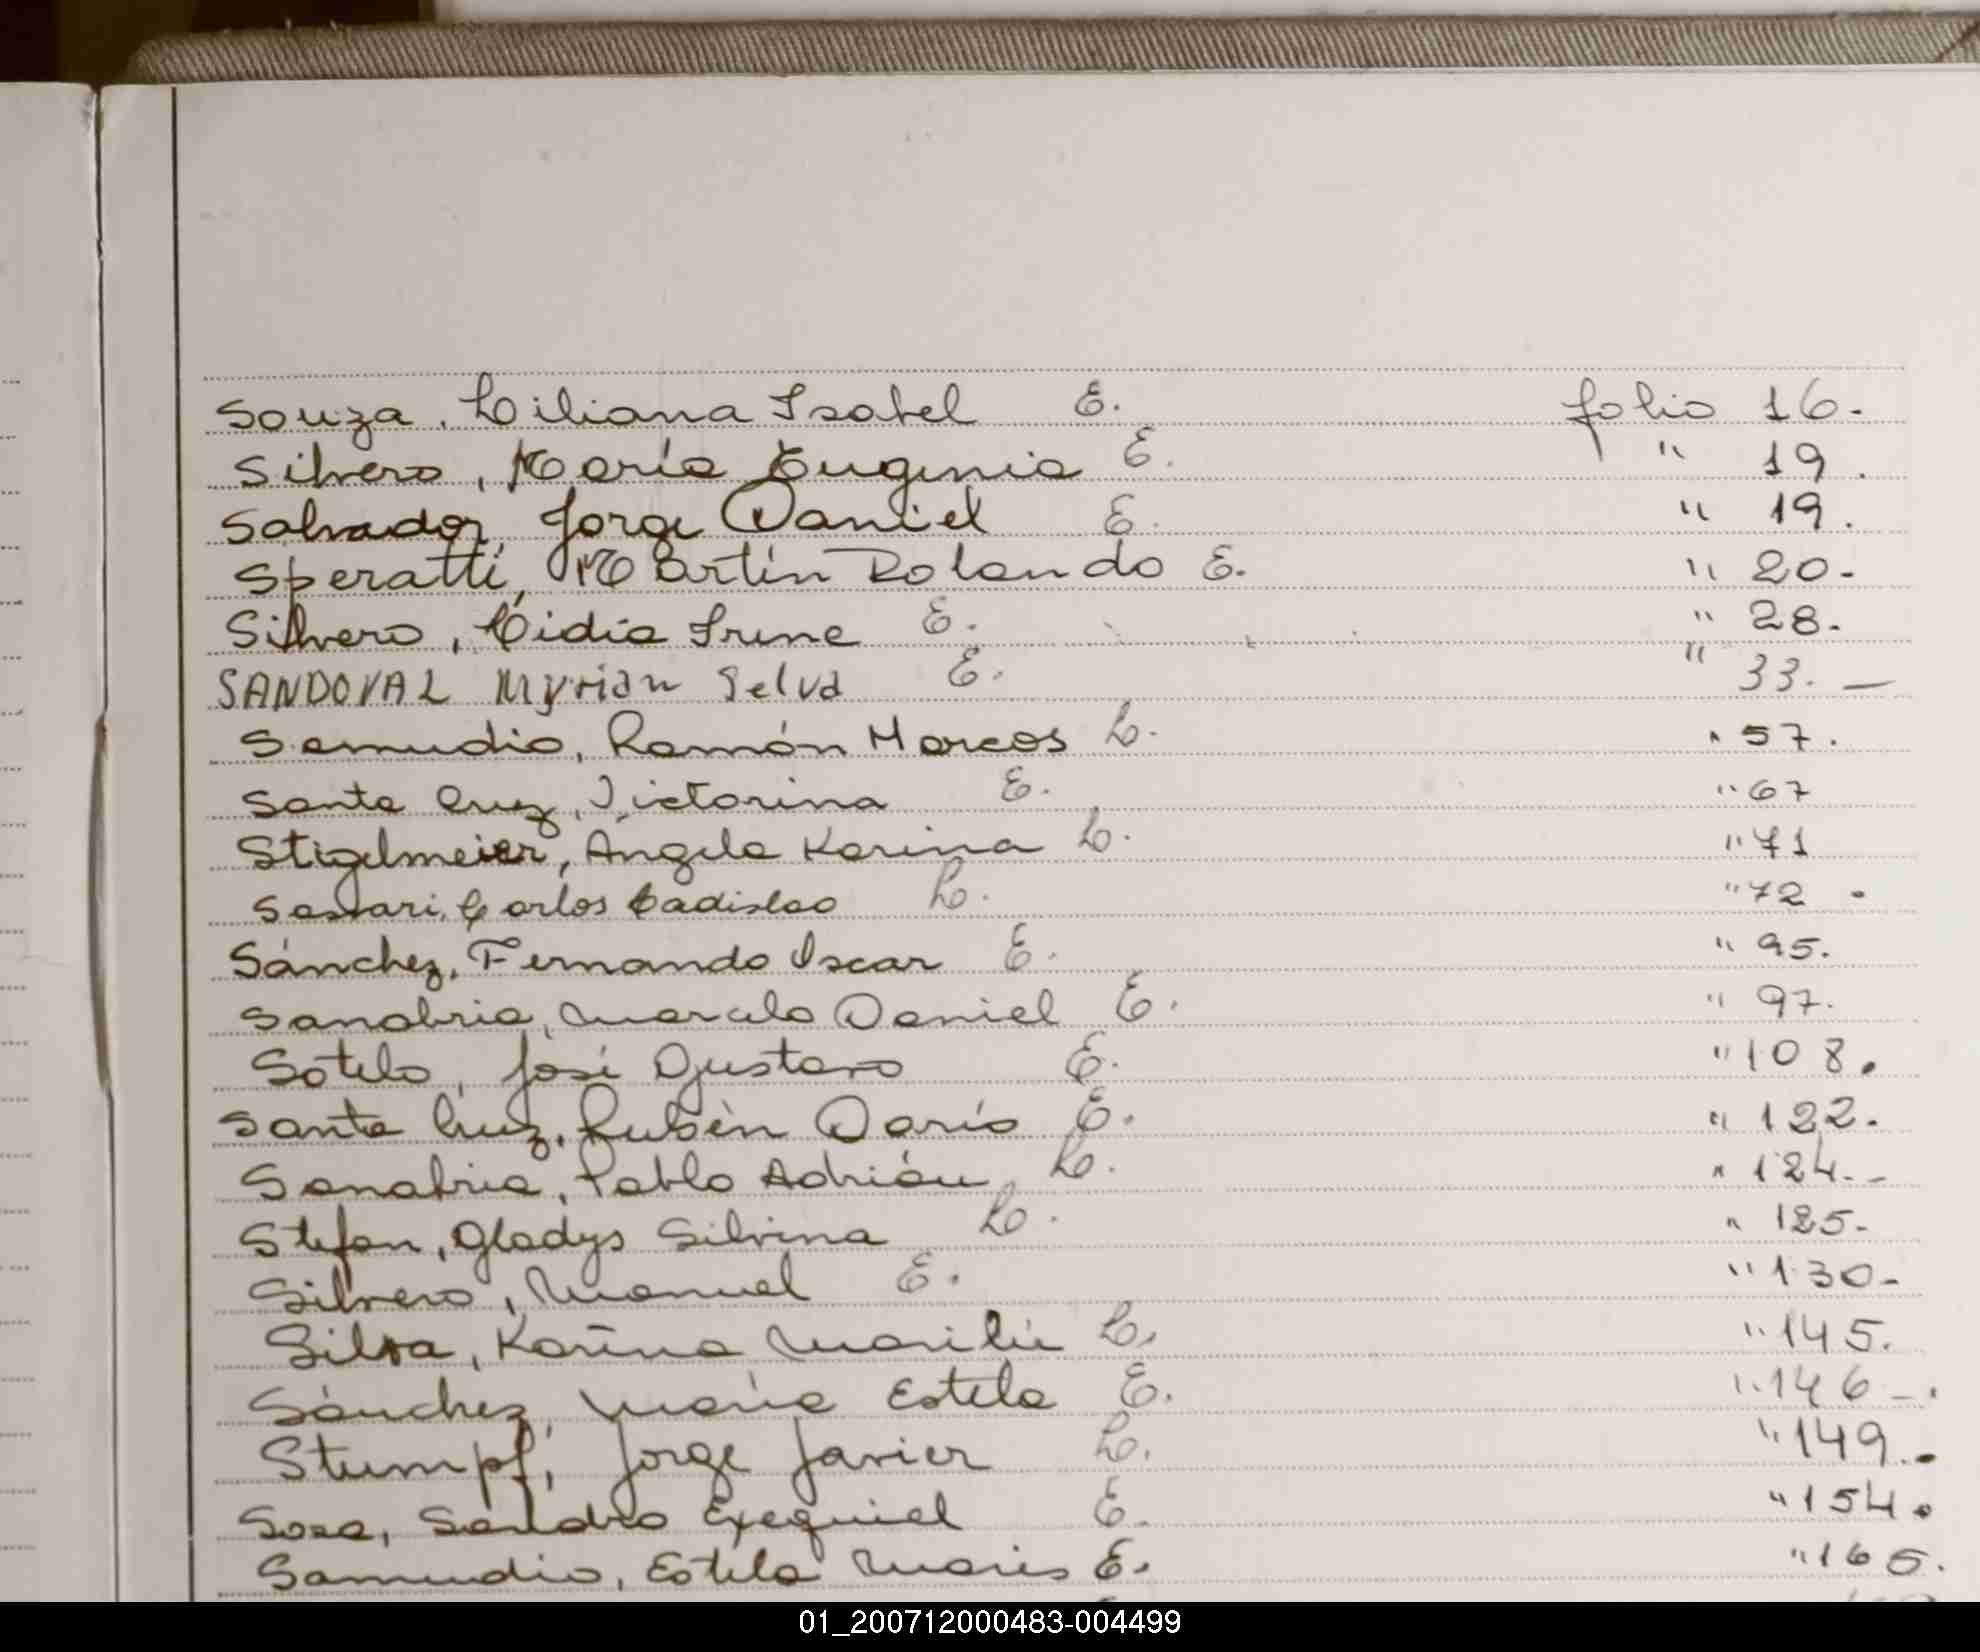 Souza, Liliana Isabel E. folio 16.
Silvero, María Eugenia E. " 19.
Salvador, Jorge Daniel E. " 19.
Speratti, Martín Rolando E. " 20.
Silvero, Lidia Irene E. " 28.
SANDOVAL Myrian Selva E. " 33. —
Samudio, Ramón Marcos L. " 57.
Santa Cruz, Victorina E. " 67
Stigelmeier, Ángela Karina L. " 71
Sassari, Carlos Ladislao L. " 72.
Sánchez, Fernando Oscar E. " 95.
Sanabria, Marcelo Daniel E. " 97.
Sotelo, José Gustavo E. " 108.
Santa Cruz, Rubén Darío E. " 122.
Sanabria, Pablo Adrián L. " 124.-
Stefan, Gladys Silvina L. " 125-
Silvero, Manuel E. " 130-
Silva, Karina Marilú L. " 145.
Sánchez, María Estela E. " 146-.
Stumpf, Jorge Javier L. " 149.-
Sosa, Sandro Exequiel E. " 154.
Samudio, Estela Maris E. " 165.
01_200712000483-004499